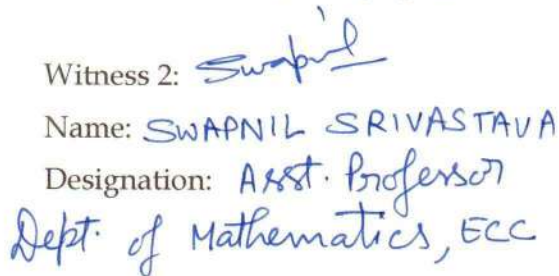 Witness 2: Swapnil
Name: SWAPNIL SRIVASTAVA
Designation: Asst. Professor
Dept. of Mathematics, ECC